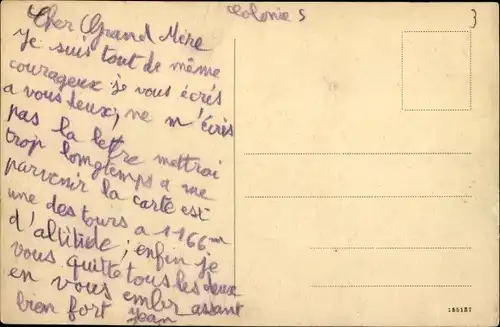 Cher Grand Mère
Je suis tout de même
courageux je vous écris
a vous deux, ne m'écris
pas la lettre mettrai
trop lomgtemps a me
parvenir la carte est
une des tours a 1166m
d'altitide; enfin je
vous quitte tous les deux
en vous embrassant
bien fort Jean
Colonie S
3
185157